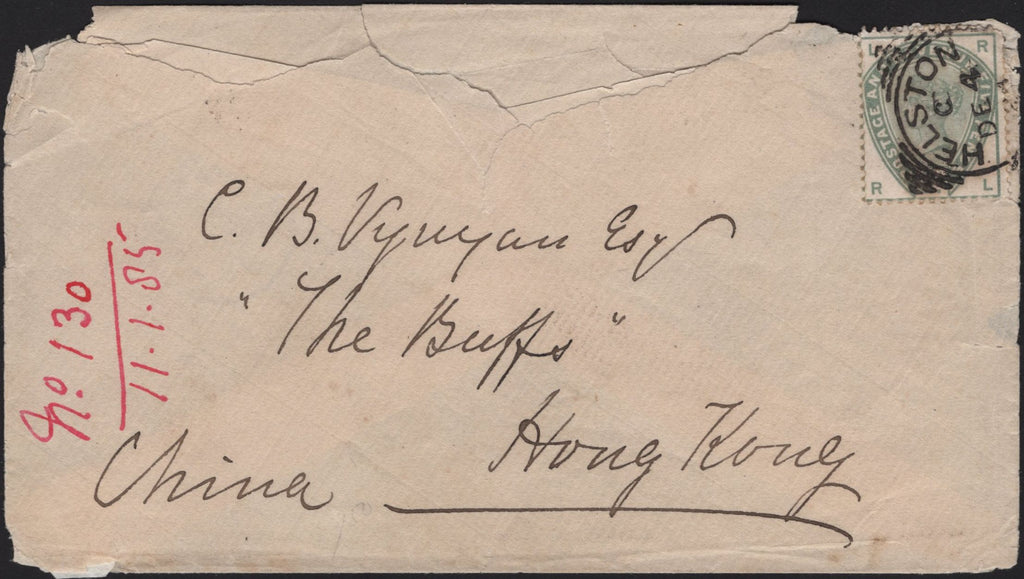 C. B. Vyvyan Esq
"The Buffs"
Hong Kong
China
No. 130
11.1.85
HELSTON
C
DE 4
POSTAGE AND
L R
R L